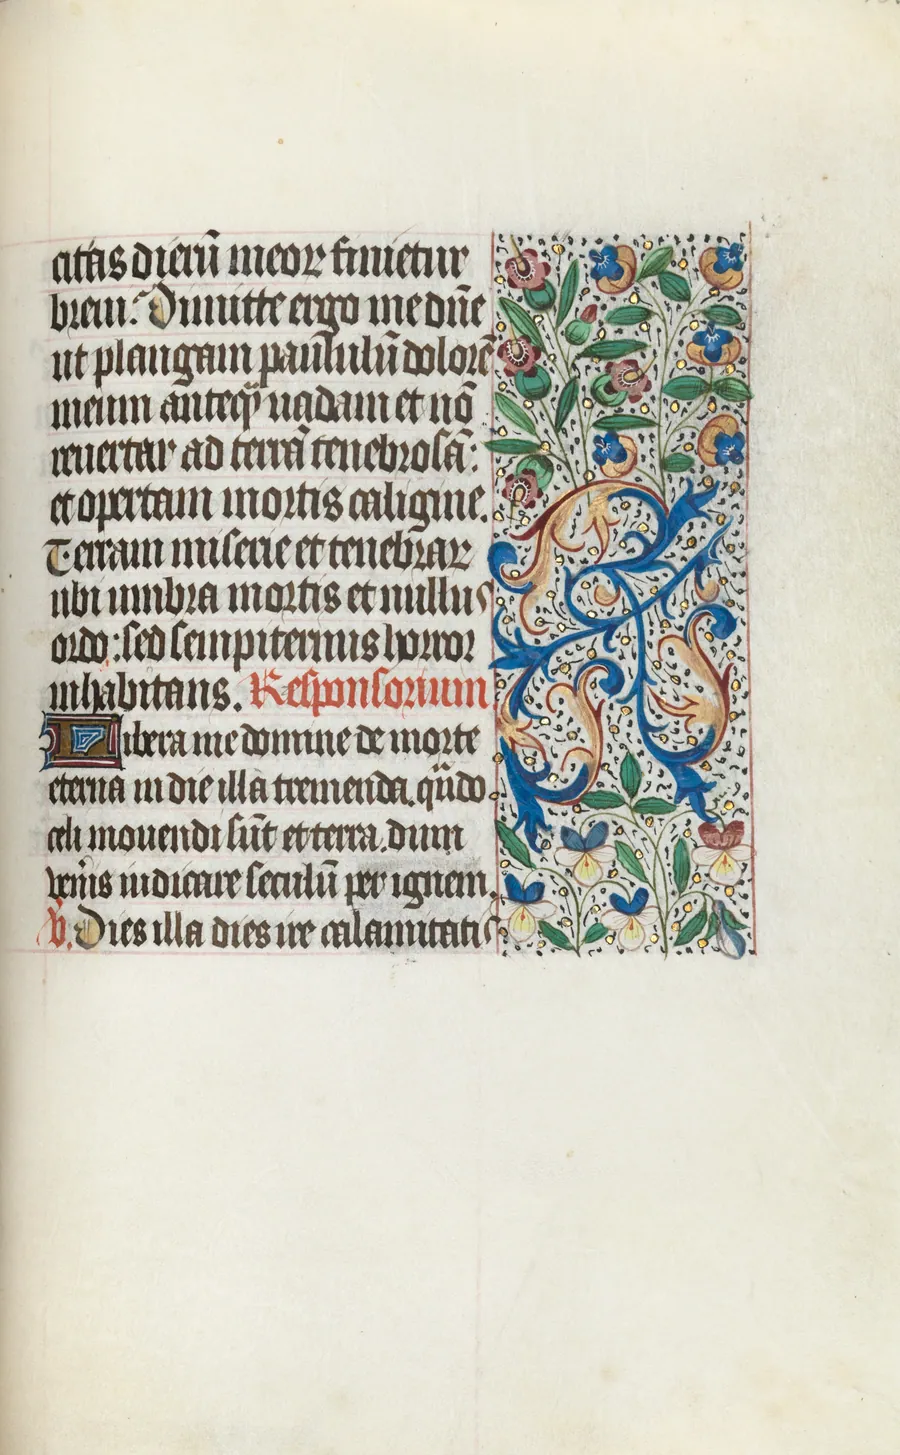 citas dierū meoꝝ finietur
breui. Dimitte ergo me dn̄e
ut plangam paululū dolorē
meum anteq̄ uadam et nō
reuertar ad terrā tenebrosā:
et opertam mortis caligine.
Terram miserie et tenebraꝝ
ubi umbra mortis et nullus
ordo: sed sempiternus horror
inhabitans. Responsorium
Libera me domine de morte
eterna in die illa tremenda. qn̄do
celi mouendi sūt et terra. dum
ven̄is iudicare seculū per ignem.
V. Dies illa dies ire calamitatis